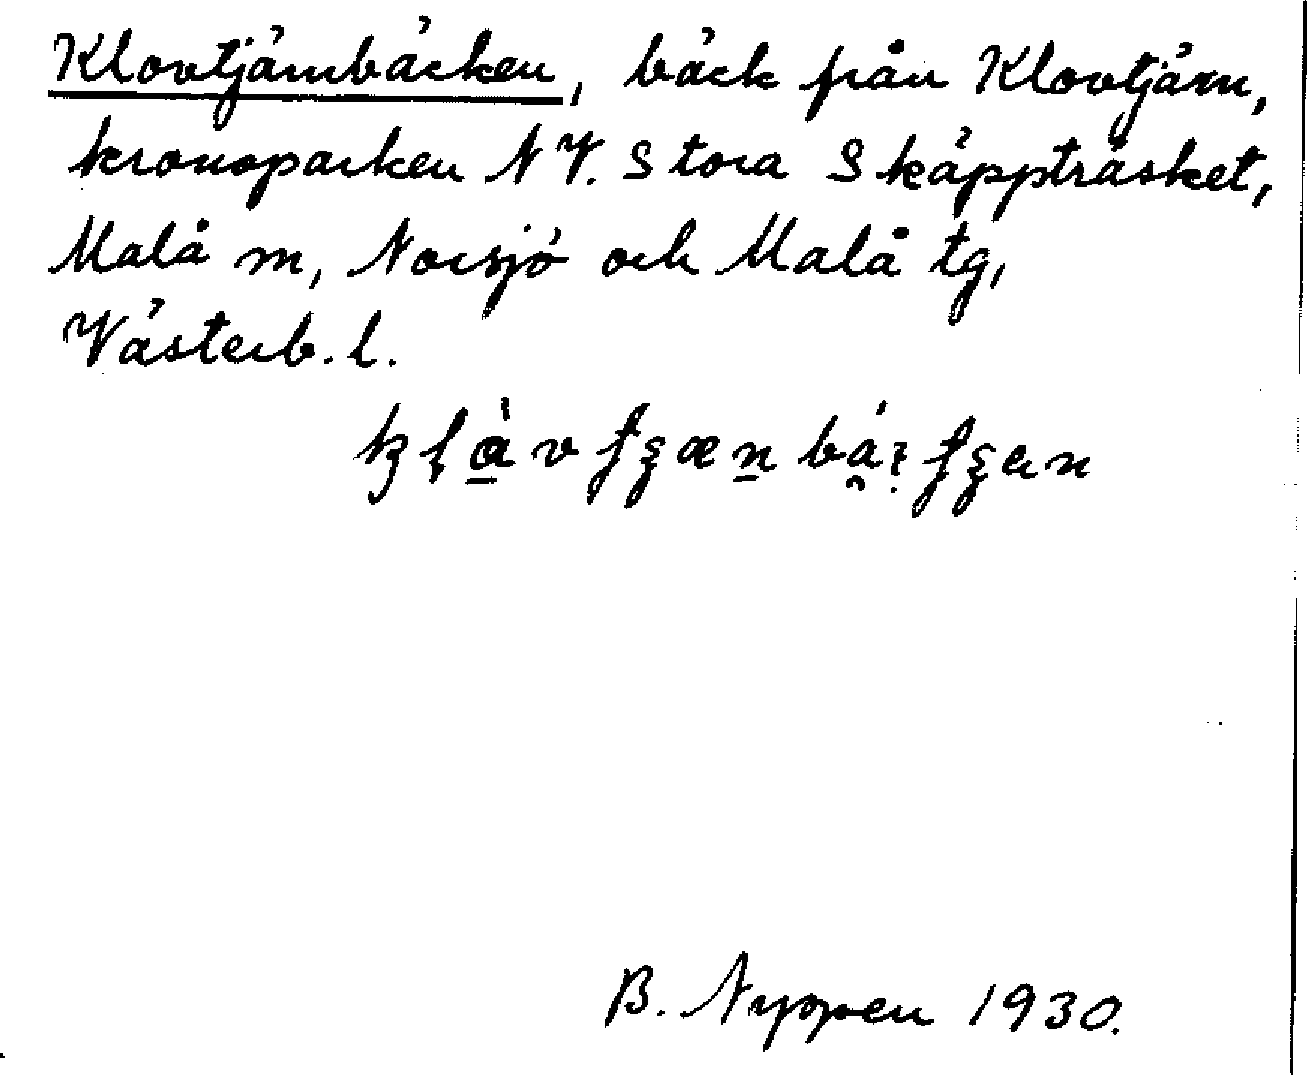 Klovtjärnbäcken, bäck från Klovtjärn,
kronoparken NV. Stora Skäppträsket,
Malå m, Norsjö och Malå tg,
Västerb. l.
B. Nyppen 1930.